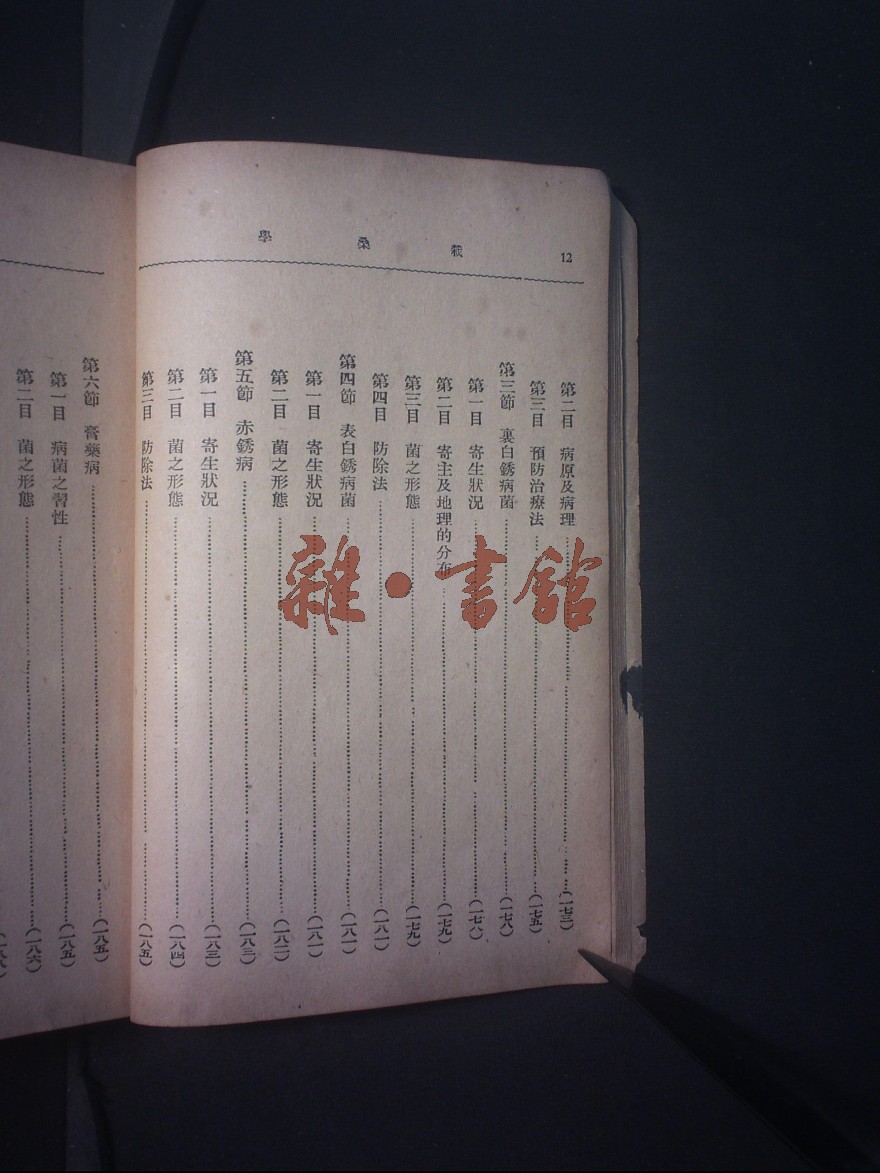 12
栽桑學
第二目 病原及病理……(一七三)
第三目 預防治療法……(一七五)
第三節 裏白銹病菌……(一七八)
第一目 寄生狀況……(一七八)
第二目 寄主及地理的分布……(一七九)
第三目 菌之形態……(一七九)
第四目 防除法……(一八一)
第四節 表白銹病菌……(一八一)
第一目 寄生狀況……(一八一)
第二目 菌之形態……(一八二)
第五節 赤銹病……(一八三)
第一目 寄生狀況……(一八三)
第二目 菌之形態……(一八四)
第三目 防除法……(一八五)
第六節 膏藥病……(一八五)
第一目 病菌之習性……(一八五)
第二目 菌之形態……(一八六)
雜·書館